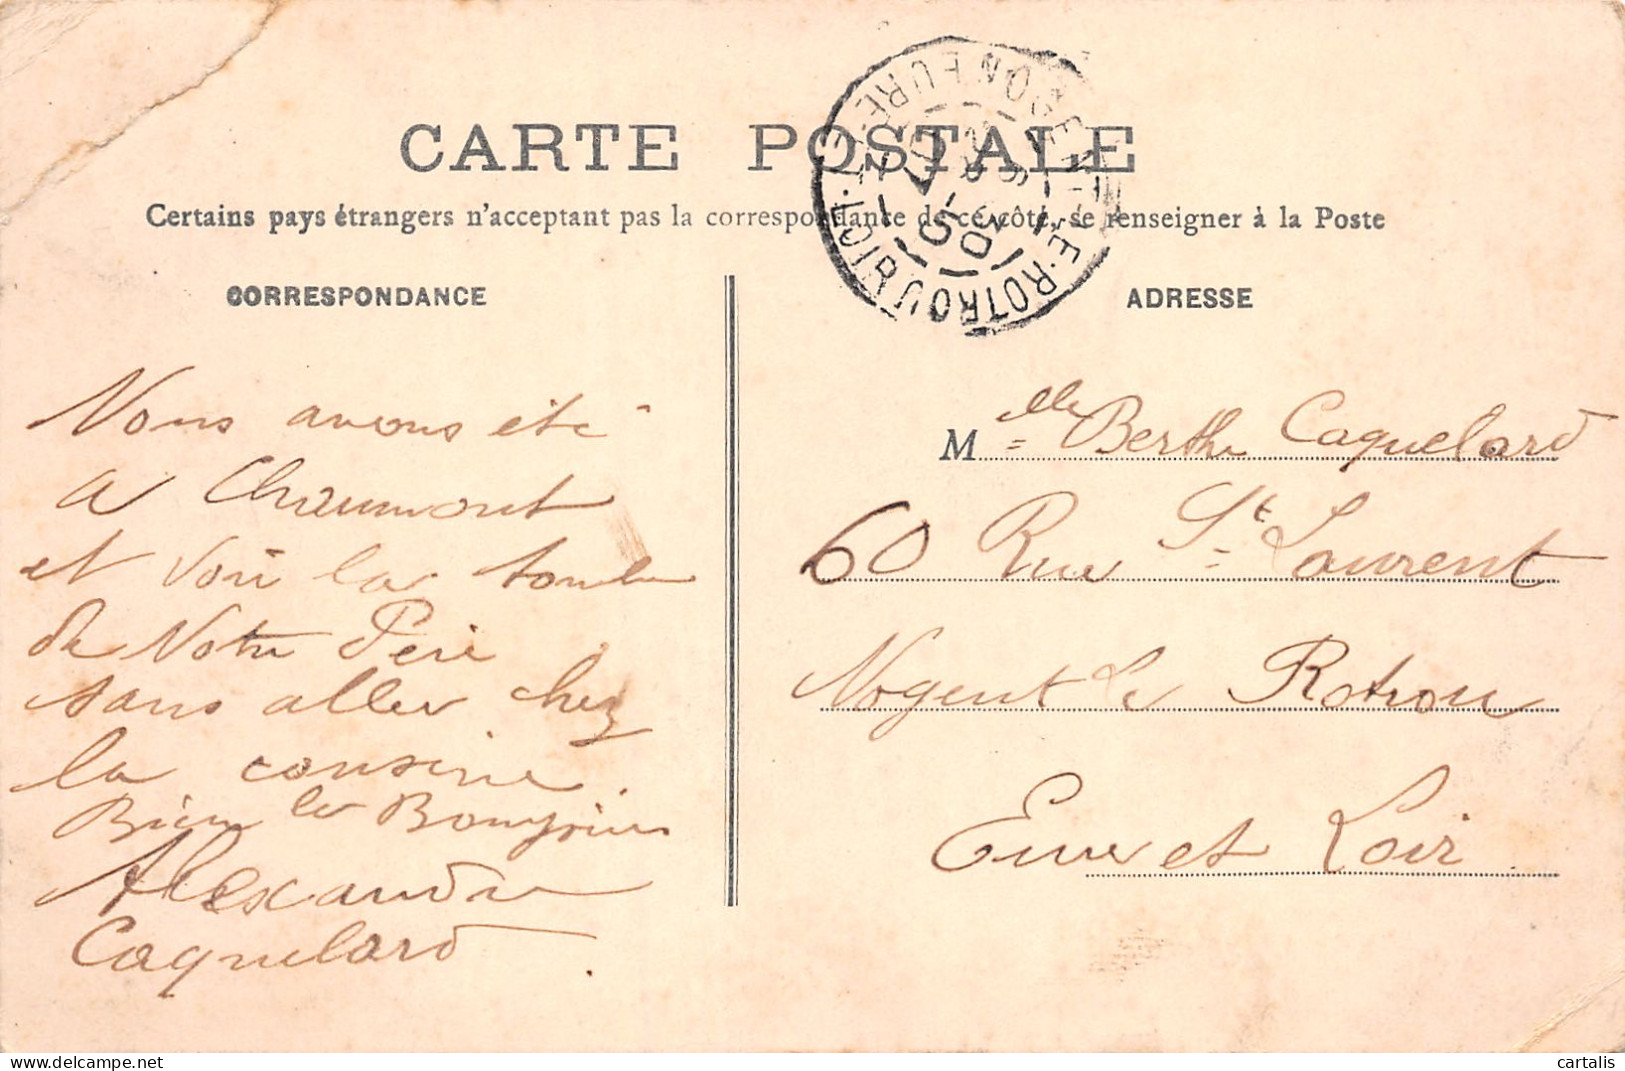 CARTE POSTALE
Certains pays étrangers n'acceptent pas la correspondance de ce côté, se renseigner à la Poste
CORRESPONDANCE
Nous avons été
a Chaumont
et voir la tombe
de Notre Père
sans aller chez
la cousine.
Bien le Bonjour
Alexandre
Caquelard
ADRESSE
Mlle Berthe Caquelard
60 Rue St Laurent
Nogent Le Rotrou
Eure et Loir
NOGENT-LE-ROTROU EURE-ET-LOIR
cartalis
www.delcampe.net